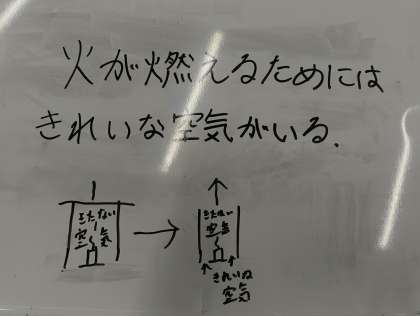 火が燃えるためには
きれいな空気がいる.
きたない
空気
きたない
空気
きれいな
空気